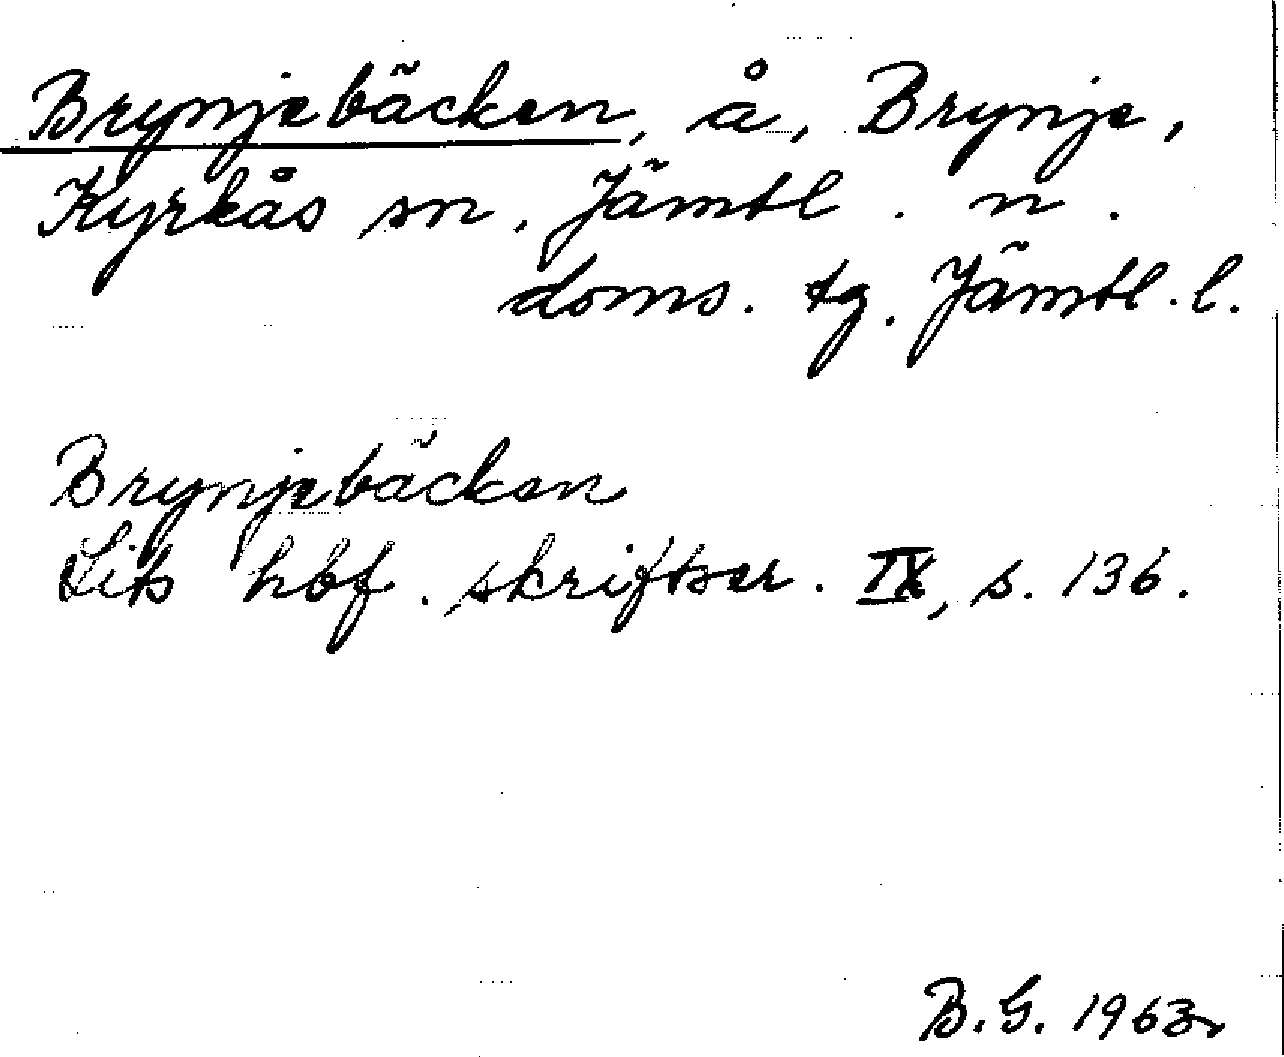 Brynjebäcken, å, Brynje,
Kyrkås sn, Jämtl. n.
doms. tg. Jämtl. l.
Brynjebäcken
Lits hbf. skriftser. IX, s. 136.
B.G. 1963